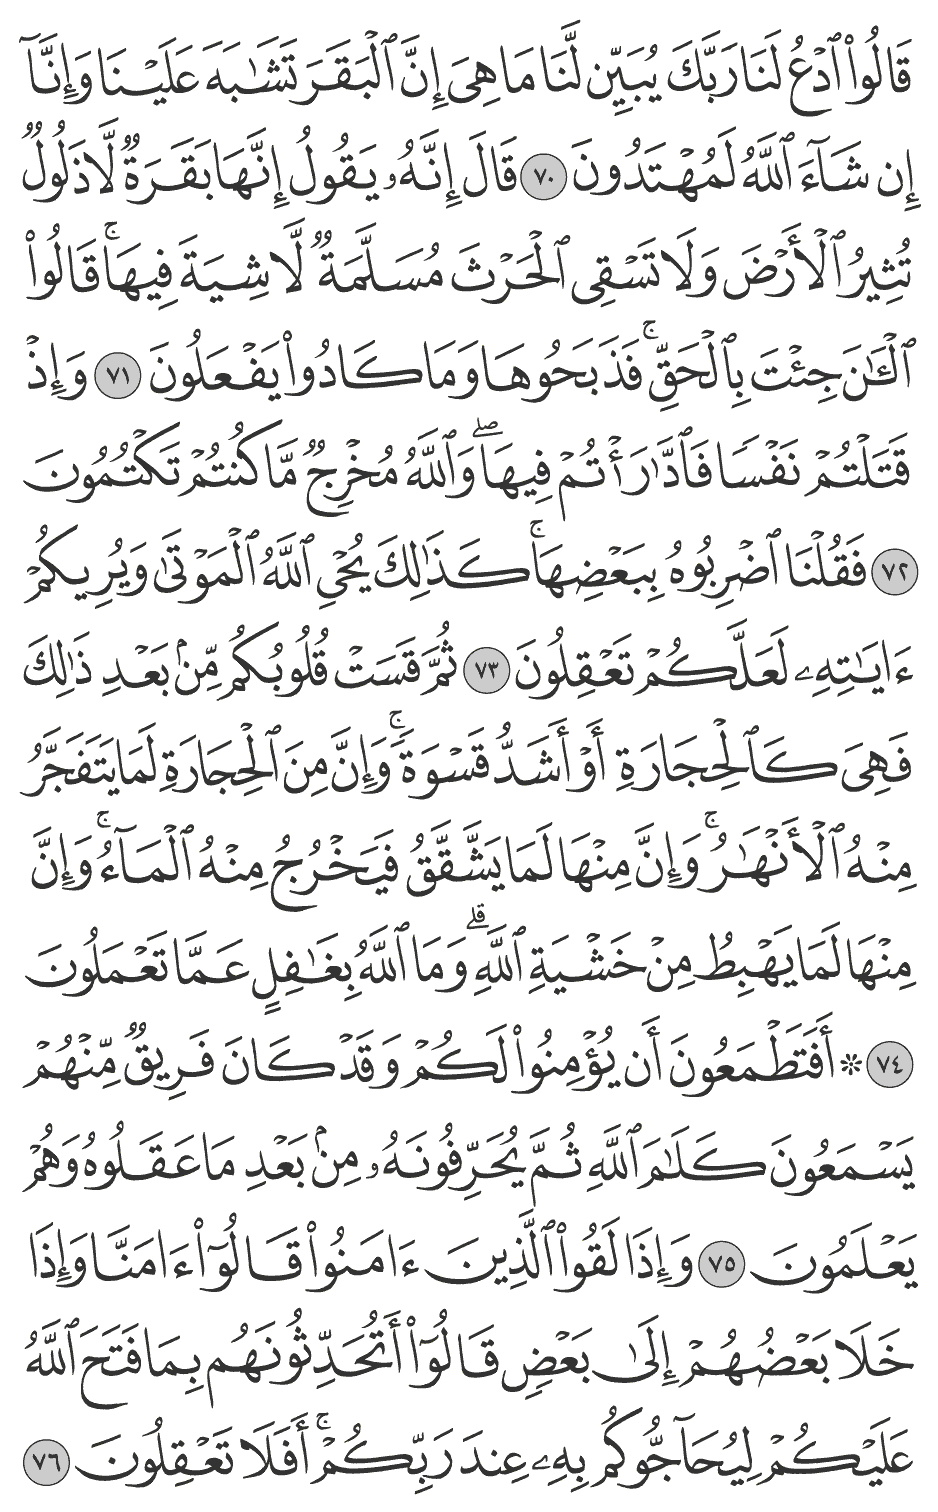 قَالُوا۟ ٱدْعُ لَنَا رَبَّكَ يُبَيِّن لَّنَا مَا هِىَ إِنَّ ٱلْبَقَرَ تَشَـٰبَهَ عَلَيْنَا وَإِنَّآ
إِن شَآءَ ٱللَّهُ لَمُهْتَدُونَ ٧٠ قَالَ إِنَّهُۥ يَقُولُ إِنَّهَا بَقَرَةٌ لَّا ذَلُولٌ
تُثِيرُ ٱلْأَرْضَ وَلَا تَسْقِى ٱلْحَرْثَ مُسَلَّمَةٌ لَّا شِيَةَ فِيهَا ۚ قَالُوا۟
ٱلْـَٔـٰنَ جِئْتَ بِٱلْحَقِّ ۚ فَذَبَحُوهَا وَمَا كَادُوا۟ يَفْعَلُونَ ٧١ وَإِذْ
قَتَلْتُمْ نَفْسًا فَٱدَّٰرَْٰٔتُمْ فِيهَا ۖ وَٱللَّهُ مُخْرِجٌ مَّا كُنتُمْ تَكْتُمُونَ
٧٢ فَقُلْنَا ٱضْرِبُوهُ بِبَعْضِهَا ۚ كَذَٰلِكَ يُحْىِ ٱللَّهُ ٱلْمَوْتَىٰ وَيُرِيكُمْ
ءَايَـٰتِهِۦ لَعَلَّكُمْ تَعْقِلُونَ ٧٣ ثُمَّ قَسَتْ قُلُوبُكُم مِّنۢ بَعْدِ ذَٰلِكَ
فَهِىَ كَٱلْحِجَارَةِ أَوْ أَشَدُّ قَسْوَةً ۚ وَإِنَّ مِنَ ٱلْحِجَارَةِ لَمَا يَتَفَجَّرُ
مِنْهُ ٱلْأَنْهَـٰرُ ۚ وَإِنَّ مِنْهَا لَمَا يَشَّقَّقُ فَيَخْرُجُ مِنْهُ ٱلْمَآءُ ۚ وَإِنَّ
مِنْهَا لَمَا يَهْبِطُ مِنْ خَشْيَةِ ٱللَّهِ ۗ وَمَا ٱللَّهُ بِغَـٰفِلٍ عَمَّا تَعْمَلُونَ
٧٤ ۞ أَفَتَطْمَعُونَ أَن يُؤْمِنُوا۟ لَكُمْ وَقَدْ كَانَ فَرِيقٌ مِّنْهُمْ
يَسْمَعُونَ كَلَـٰمَ ٱللَّهِ ثُمَّ يُحَرِّفُونَهُۥ مِنۢ بَعْدِ مَا عَقَلُوهُ وَهُمْ
يَعْلَمُونَ ٧٥ وَإِذَا لَقُوا۟ ٱلَّذِينَ ءَامَنُوا۟ قَالُوٓا۟ ءَامَنَّا وَإِذَا
خَلَا بَعْضُهُمْ إِلَىٰ بَعْضٍ قَالُوٓا۟ أَتُحَدِّثُونَهُم بِمَا فَتَحَ ٱللَّهُ
عَلَيْكُمْ لِيُحَآجُّوكُم بِهِۦ عِندَ رَبِّكُمْ ۚ أَفَلَا تَعْقِلُونَ ٧٦